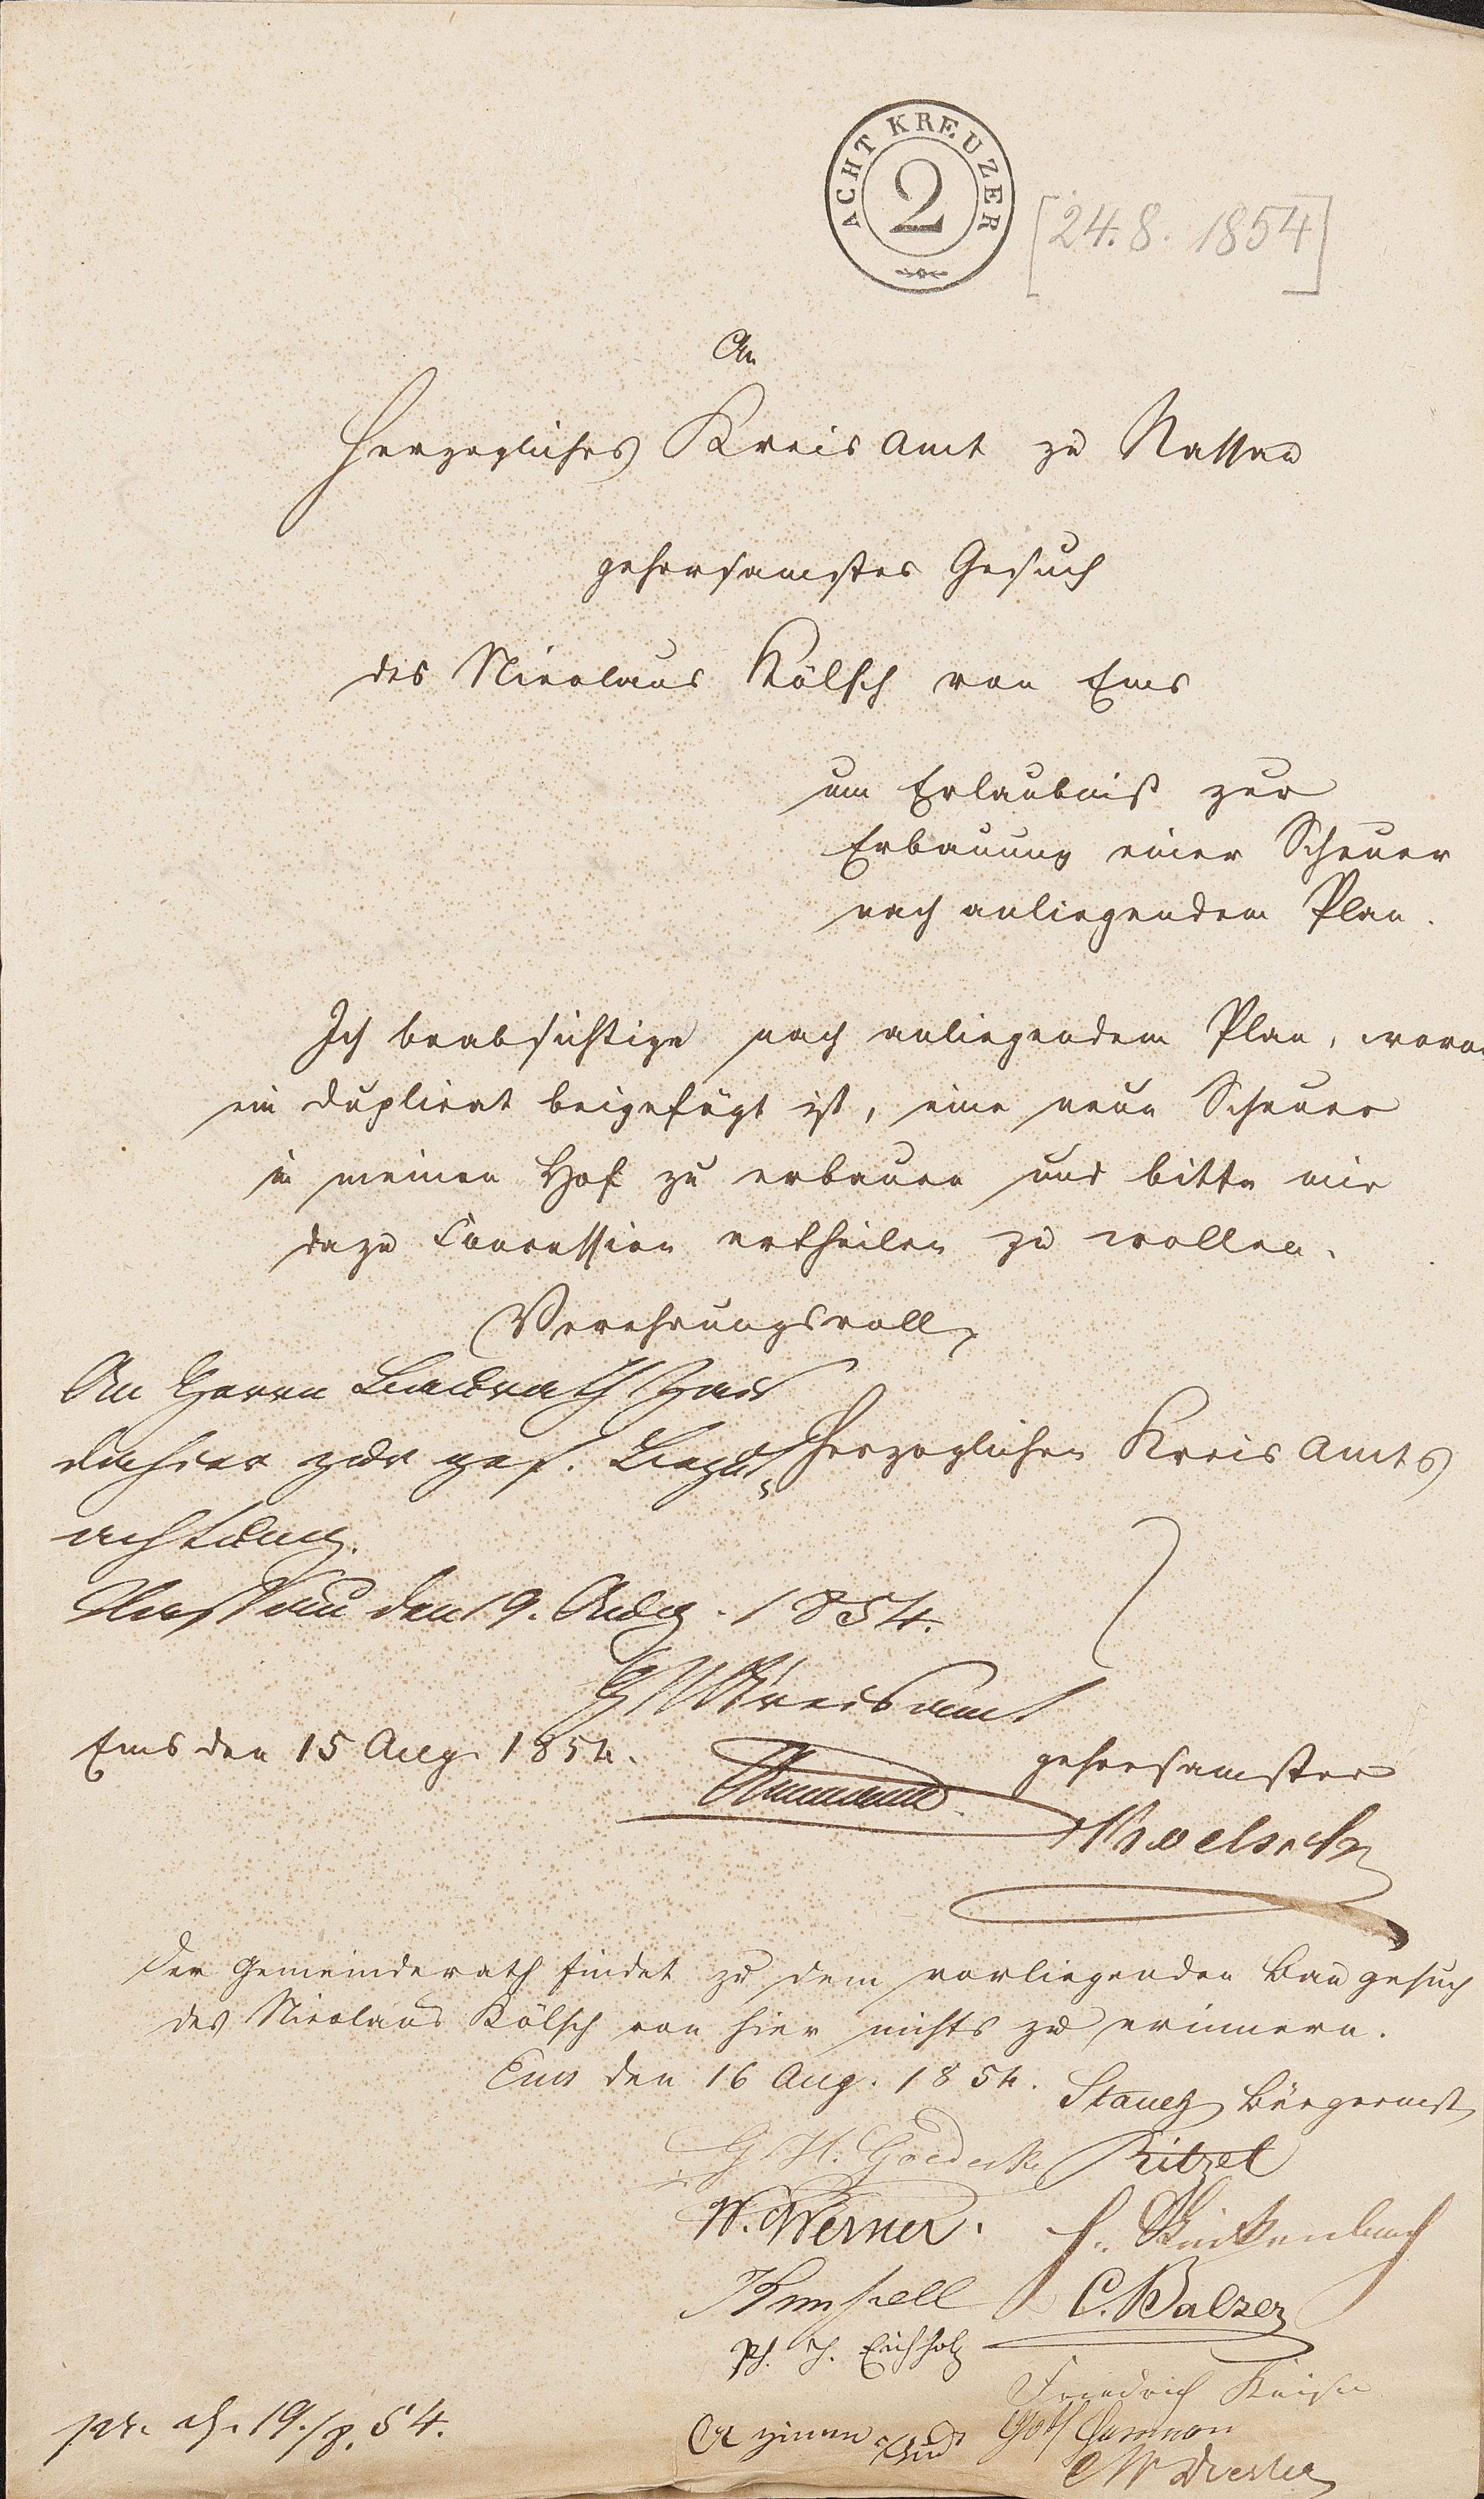 ACHT KREUZER
2
[24.8.1854]
An
Herzogliches Kreisamt zu Nassau
gehorsamstes Gesuch
des Nicolaus Kölsch von Ems
um Erlaubniß zur
Erbauung einer Scheuer
nach anliegendem Plan.
Ich beabsichtige nach anliegendem Plan, wovon
ein Duplicat beigefügt ist, eine neue Scheuer
in meinen Hof zu erbauen und bitte mir
dazu Concession ertheilen zu wollen.
Verehrungsvoll
An Herrn Baurath Zais
dahier zur gef. Begut-
Herzoglichen Kreisamts
achtung.
Nassau den 19. Aug. 1854.
H N Kreisamt
Ems den 15 Aug. 1854.
gehorsamster
Koelsch
Der Gemeinderath findet zu dem vorliegenden Baugesuch
des Nicolaus Kölsch von hier nichts zu erinnern.
Ems den 16 Aug. 1854.
Bürgermst
G H. Goedecke
Ritzel
W. Werner.
C. Balzer
Ph. Eichholz
Friedrich
pr. 19./8. 54.